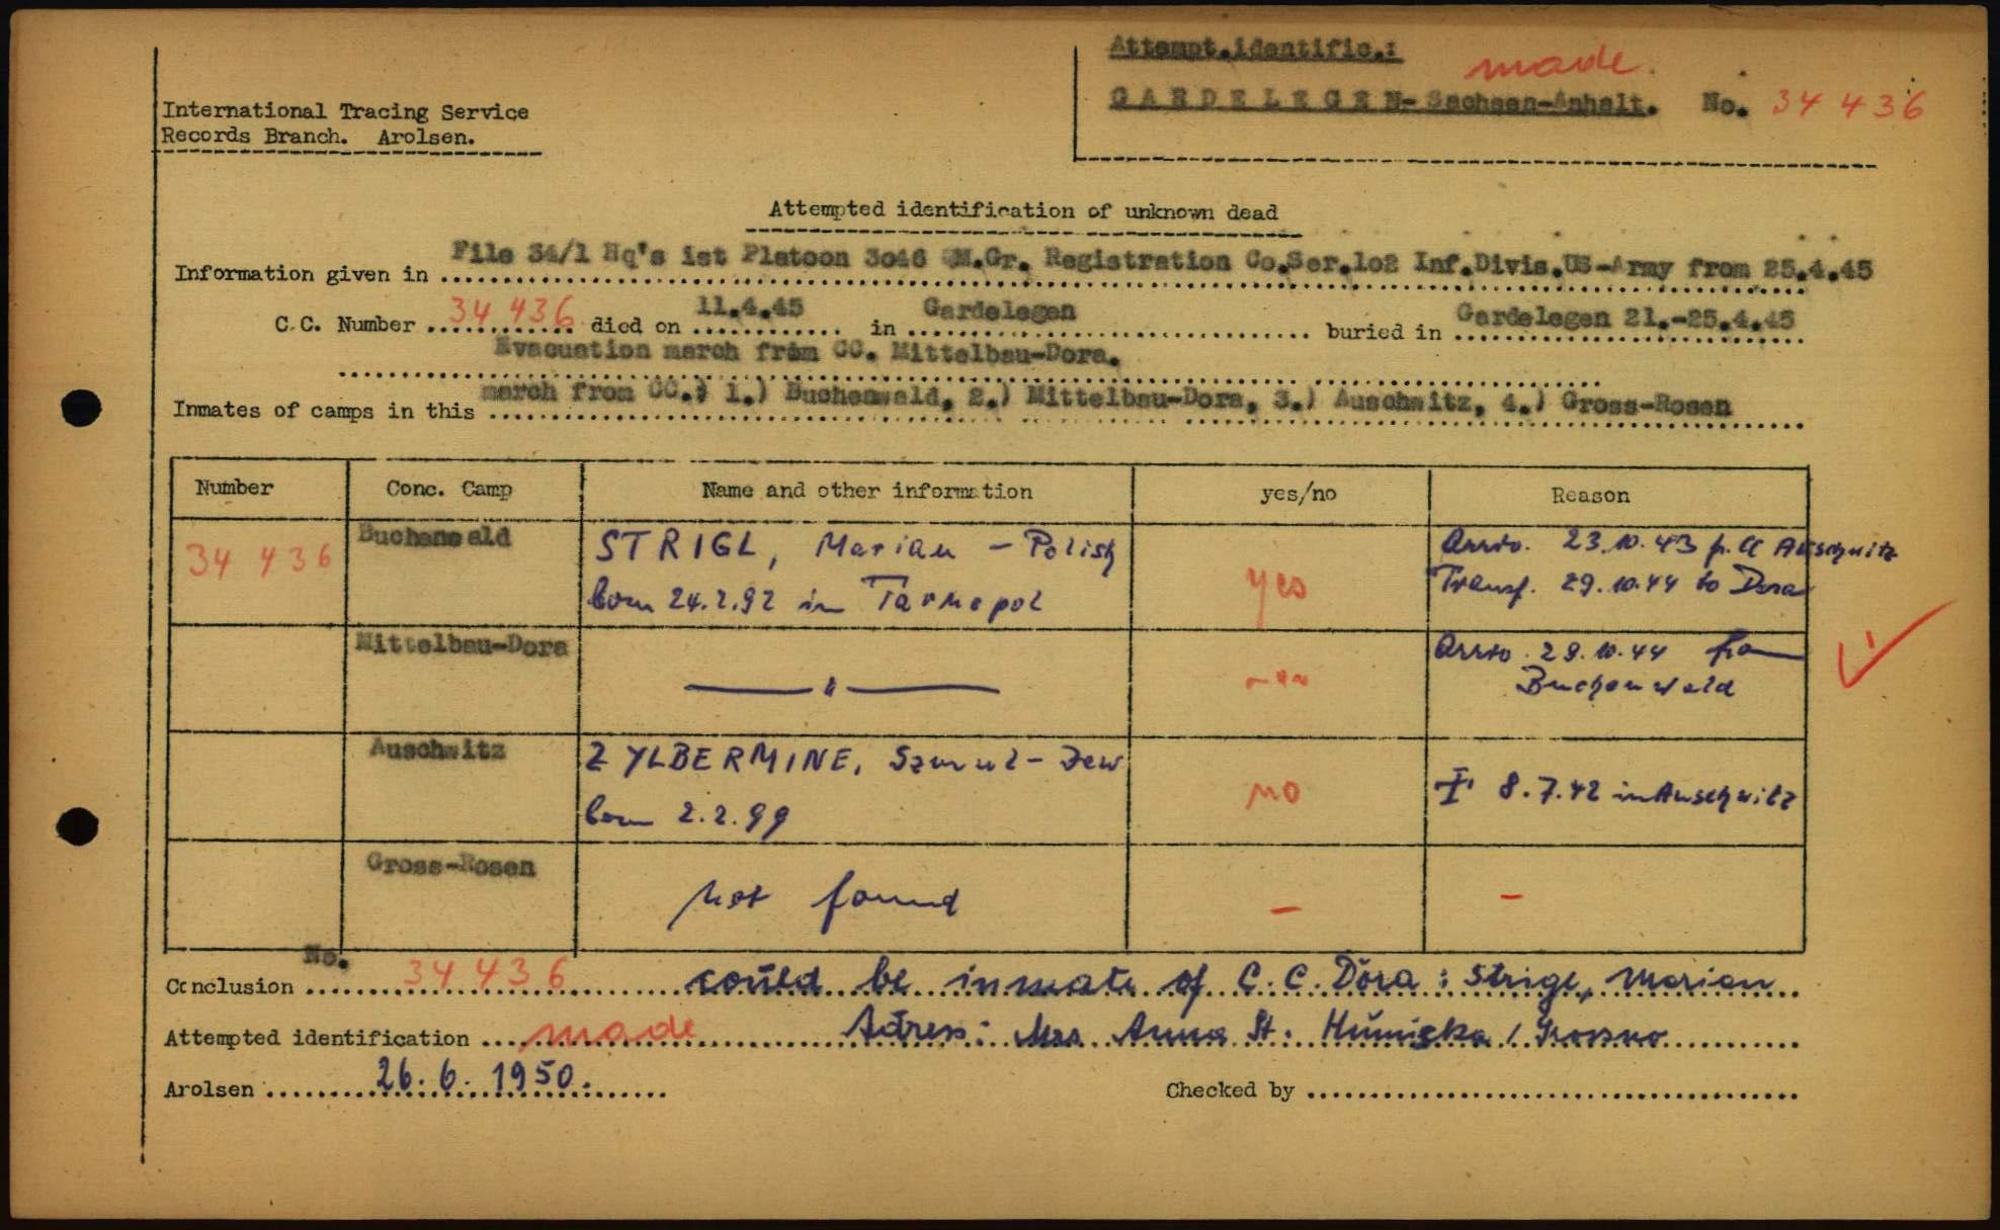 Attempt.identific.:
made.
GARDELEGEN-Sachsen-Anhalt. No. 34 436
International Tracing Service
Records Branch. Arolsen.
Attempted identification of unknown dead
Information given in File 34/1 Hq's ist Platoon 3046 QM.Gr. Registration Co.Ser.102 Inf.Divis.US-Army from 25.4.45
C.C. Number 34 436 died on 11.4.45 in Gardelegen buried in Gardelegen 21.-25.4.45
Evacuation march from CC. Mittelbau-Dora.
Inmates of camps in this march from CC.: 1.) Buchenwald, 2.) Mittelbau-Dora, 3.) Auschwitz, 4.) Gross-Rosen
Number Conc. Camp Name and other information yes/no Reason
34 436 Buchenwald STRIGL, Marian - Polish yes Arriv. 23.10.43 f. CC Auschwitz
born 24.2.92 in Tarnopol Transf. 29.10.44 to Dora
Mittelbau-Dora — " — -"- Arriv. 29.10.44 from
Buchenwald
Auschwitz ZYLBERMINE, Szmul - Jew no † 8.7.42 in Auschwitz
born 2.2.99
Gross-Rosen not found - -
Conclusion No. 34 436 could be inmate of C.C. Dora: Strigl, Marian
Attempted identification made Adress: Mrs Anna St. Humiska / Krosno
Arolsen 26.6.1950. Checked by